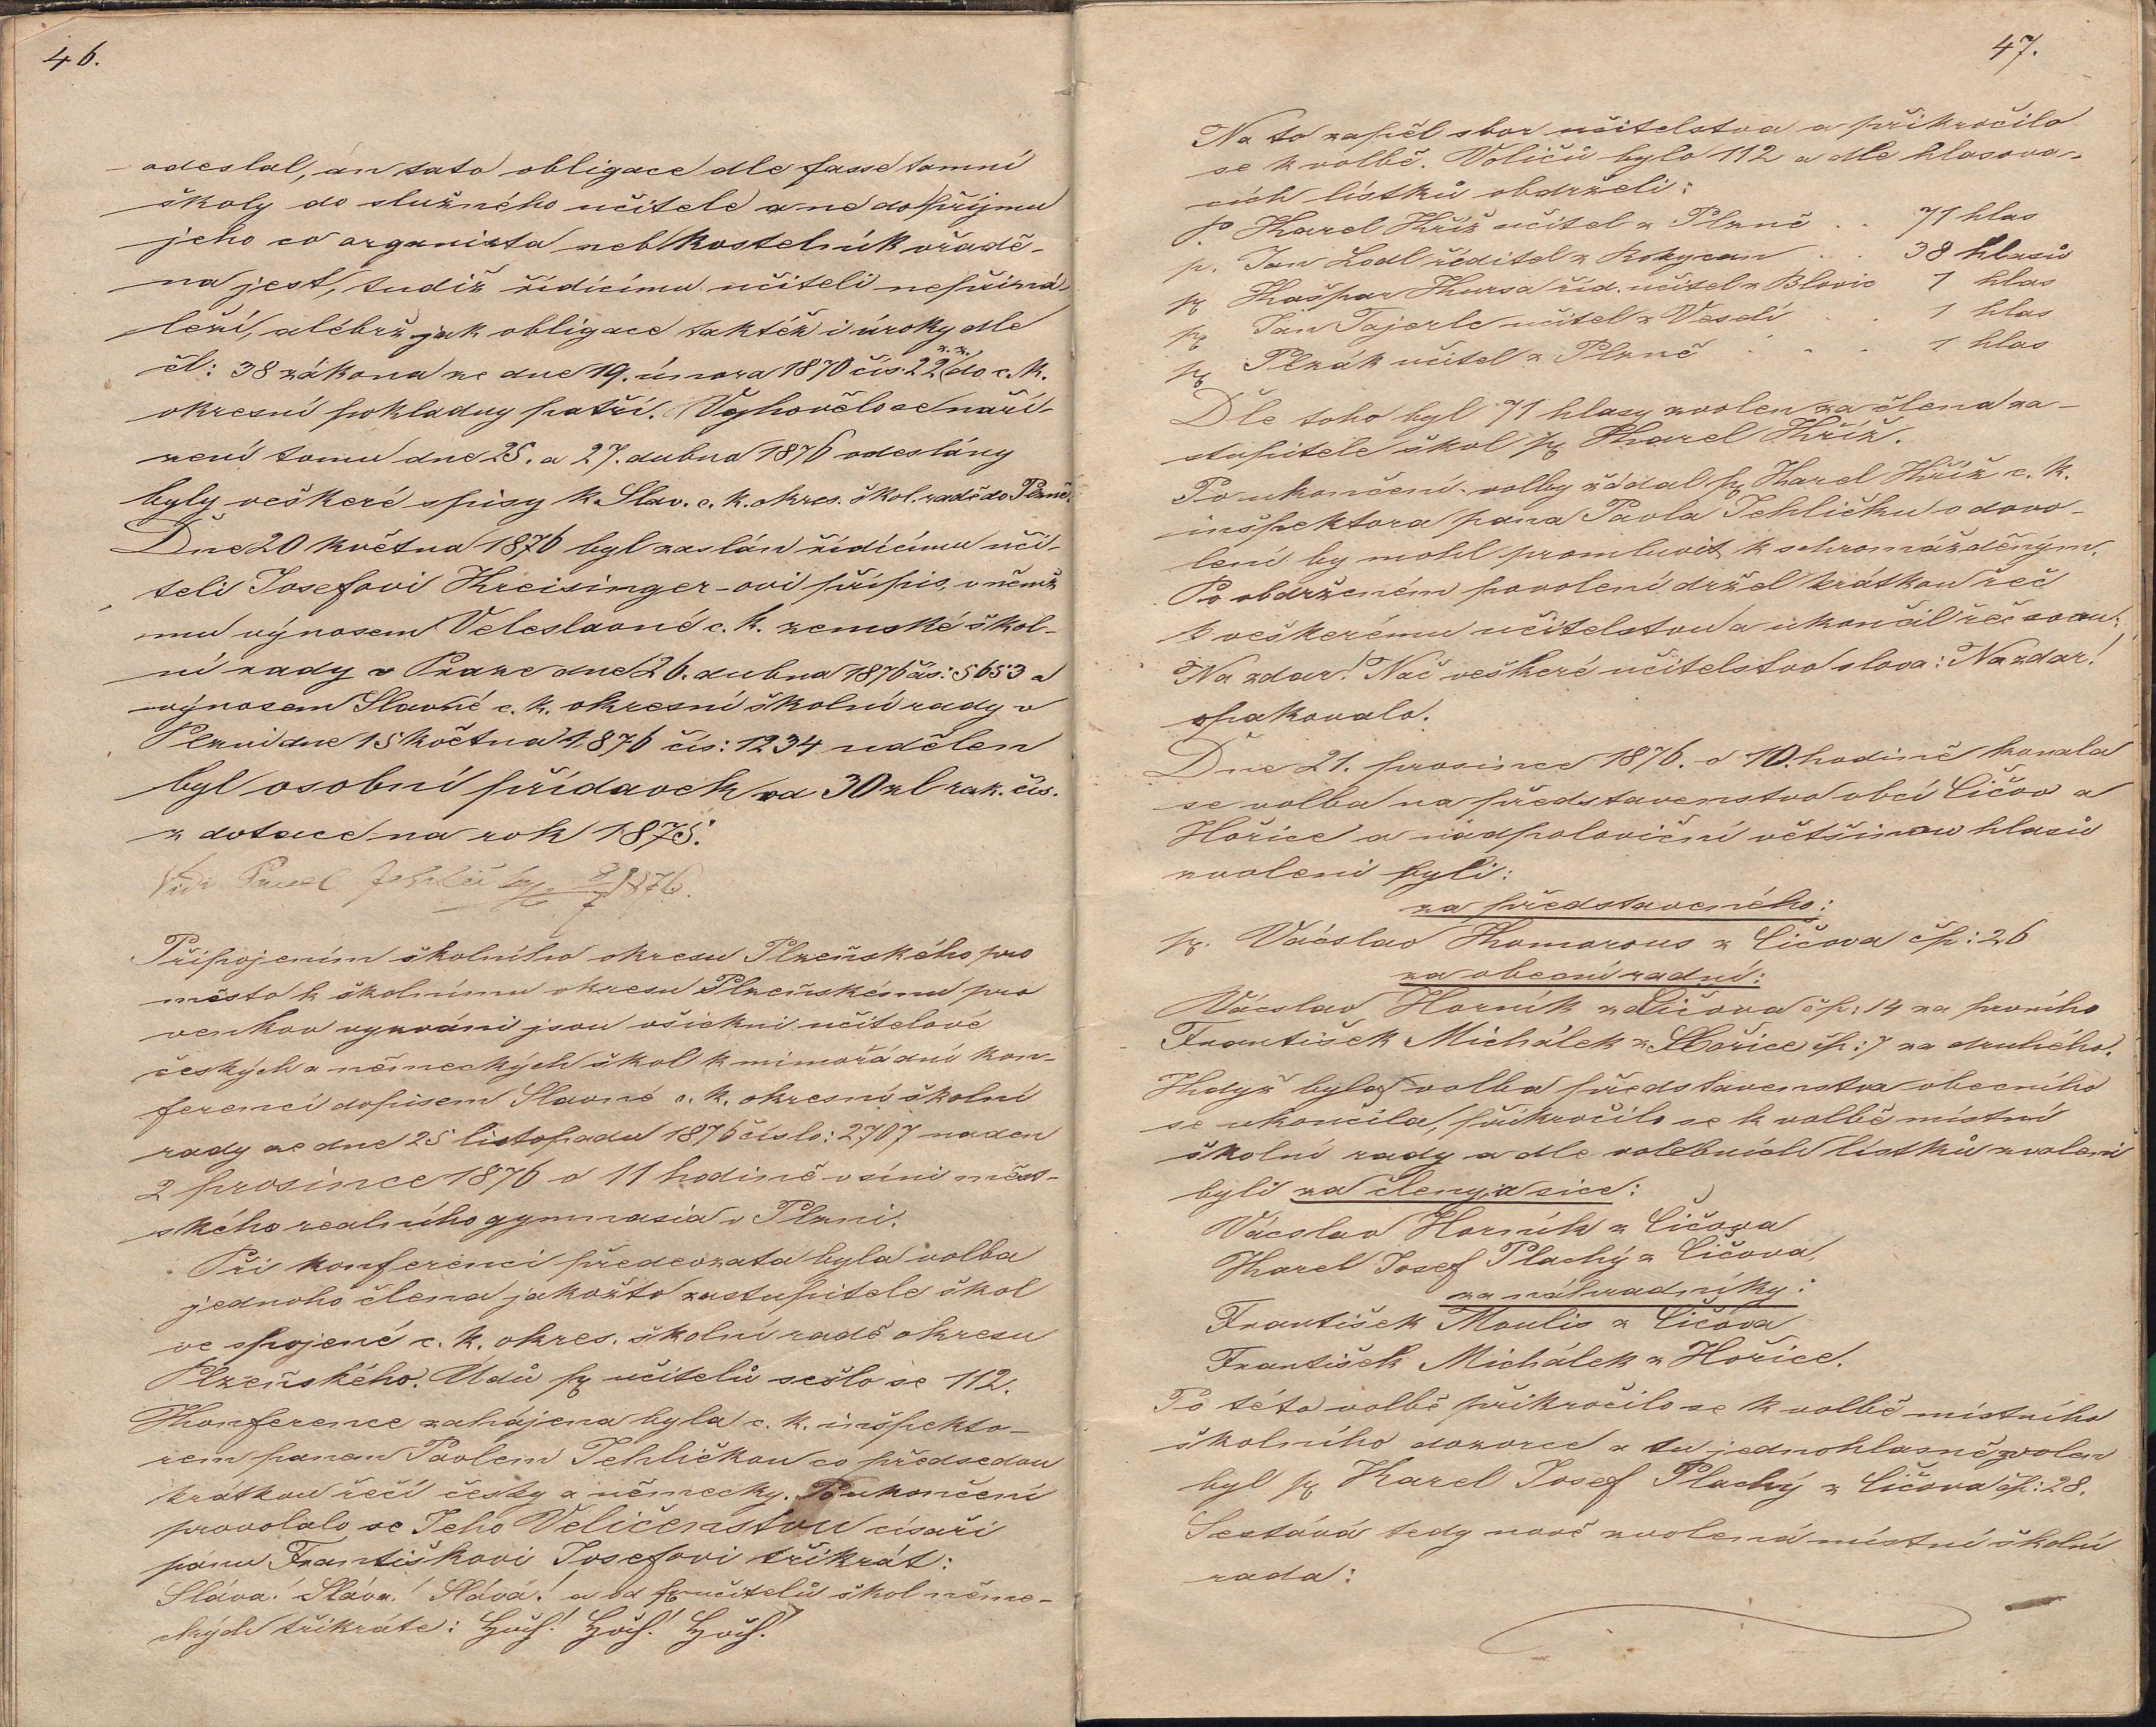 46.
odeslal, an tato obligace dle fasse tamní
školy do služného učitele a ne do příjmu
jeho co organista neb kostelník vřadě-
na jest, tudíž řídícímu učiteli nepřiná-
leží, alébrž jak obligace taktéž i úroky dle
čl: 38 zákona ze dne 19. února 1870 čís: 22 z. z. do c. k.
okresní pokladny patří. Vyhovělo se naří-
zení tomu dne 25. a 27. dubna 1876 odeslány
byly veškeré spisy k Slav. c. k. okres. škol. radě do Plzně.
Dne 20 května 1876 byl zaslán řídícímu uči-
teli Josefovi Kreisinger-ovi přípis, v němž
mu výnosem Veleslavné c. k. zemské škol-
ní rady v Praze dne 26. dubna 1876 čís: 5653 a
výnosem Slavné c. k. okresní školní rady v
Plzni dne 15 května 1876 čís: 1234 udělen
byl osobní přídavek od 30 zl rak. čís.
z dotace na rok 1875.
Vidi Pavel Jehlič 1876.
Připojením školního okresu Plzeňského pro
město k školnímu okresu Plzeňskému pro
venkov vyzváni jsou všickni učitelové
českých a německých škol k mimořádní kon-
ferenci dopisem Slavné c. k. okresní školní
rady ze dne 25 listopadu 1876 číslo: 2707 na den
2 prosince 1876 o 11 hodině v síni měst-
ského realního gymnasia v Plzni.
Při konferenci předevzata byla volba
jednoho člena jakožto zastupitele škol
ve spojené c. k. okres. školní radě okresu
Plzeňského. Údů pp učitelů sešlo se 112.
Konference zahájena byla c. k. inšpekto-
rem panem Pavlem Jehličkou co předsedou
krátkou řečí česky a německy. Po ukončení
provolalo se Jeho Veličenstvu císaři
pánu Františkovi Josefovi třikrát:
Sláva! Sláva! Sláva! a od pp učitelů škol něme-
ckých třikráte: Hoch! Hoch! Hoch!
47.
Na to zapěl sbor učitelstva a přikročilo
se k volbě. Voličů bylo 112 a dle hlasova-
cích lístků obdrželi:
p Karel Kříž učitel z Plzně . . 71 hlas
p. Jan Lodl ředitel z Rokycan . . 38 hlasů
p Kašpar Kursa říd. učitel z Blovic 1 hlas
p Jan Tajerle učitel z Veselí . . 1 hlas
p Plzák učitel z Plzně . . . 1 hlas
Dle toho byl 71 hlasy zvolen za člena za-
stupitele škol p Karel Kříž.
Po ukončení volby žádal p Karel Kříž c. k.
inšpektora pana Pavla Jehličku o dovo-
lení by mohl promluvit k schromážděným.
Po obdrženém povolení držel krátkou řeč
k veškerému učitelstvu a ukončil řeč svou:
Na zdar! Nač veškeré učitelstvo slova: Na zdar!
opakovalo.
Dne 21. prosince 1876. o 10. hodině konala
se volba na představenstvo obcí Čičov a
Hořice a nadpoloviční většinou hlasů
zvoleni byli:
za představeného:
p. Václav Komorous z Čičova čp: 26
za obecní radní:
Václav Horník z Čičova čp: 14 za prvního
František Michálek z Hořice čp: 7 za druhého.
Když byla volba představenstva obecního
se ukončila, přikročilo se k volbě místní
školní rady a dle volebních lístků zvoleni
byli za členy a sice:
Václav Horník z Čičova
Karel Josef Plachý z Čičova,
za náhradníky:
František Moulis z Čičova
František Michálek z Hořice.
Po této volbě přikročilo se k volbě místního
školního dozorce a tu jednohlasně zvolen
byl p Karel Josef Plachý z Čičova čp: 28.
Sestává tedy nově zvolená místní školní
rada: